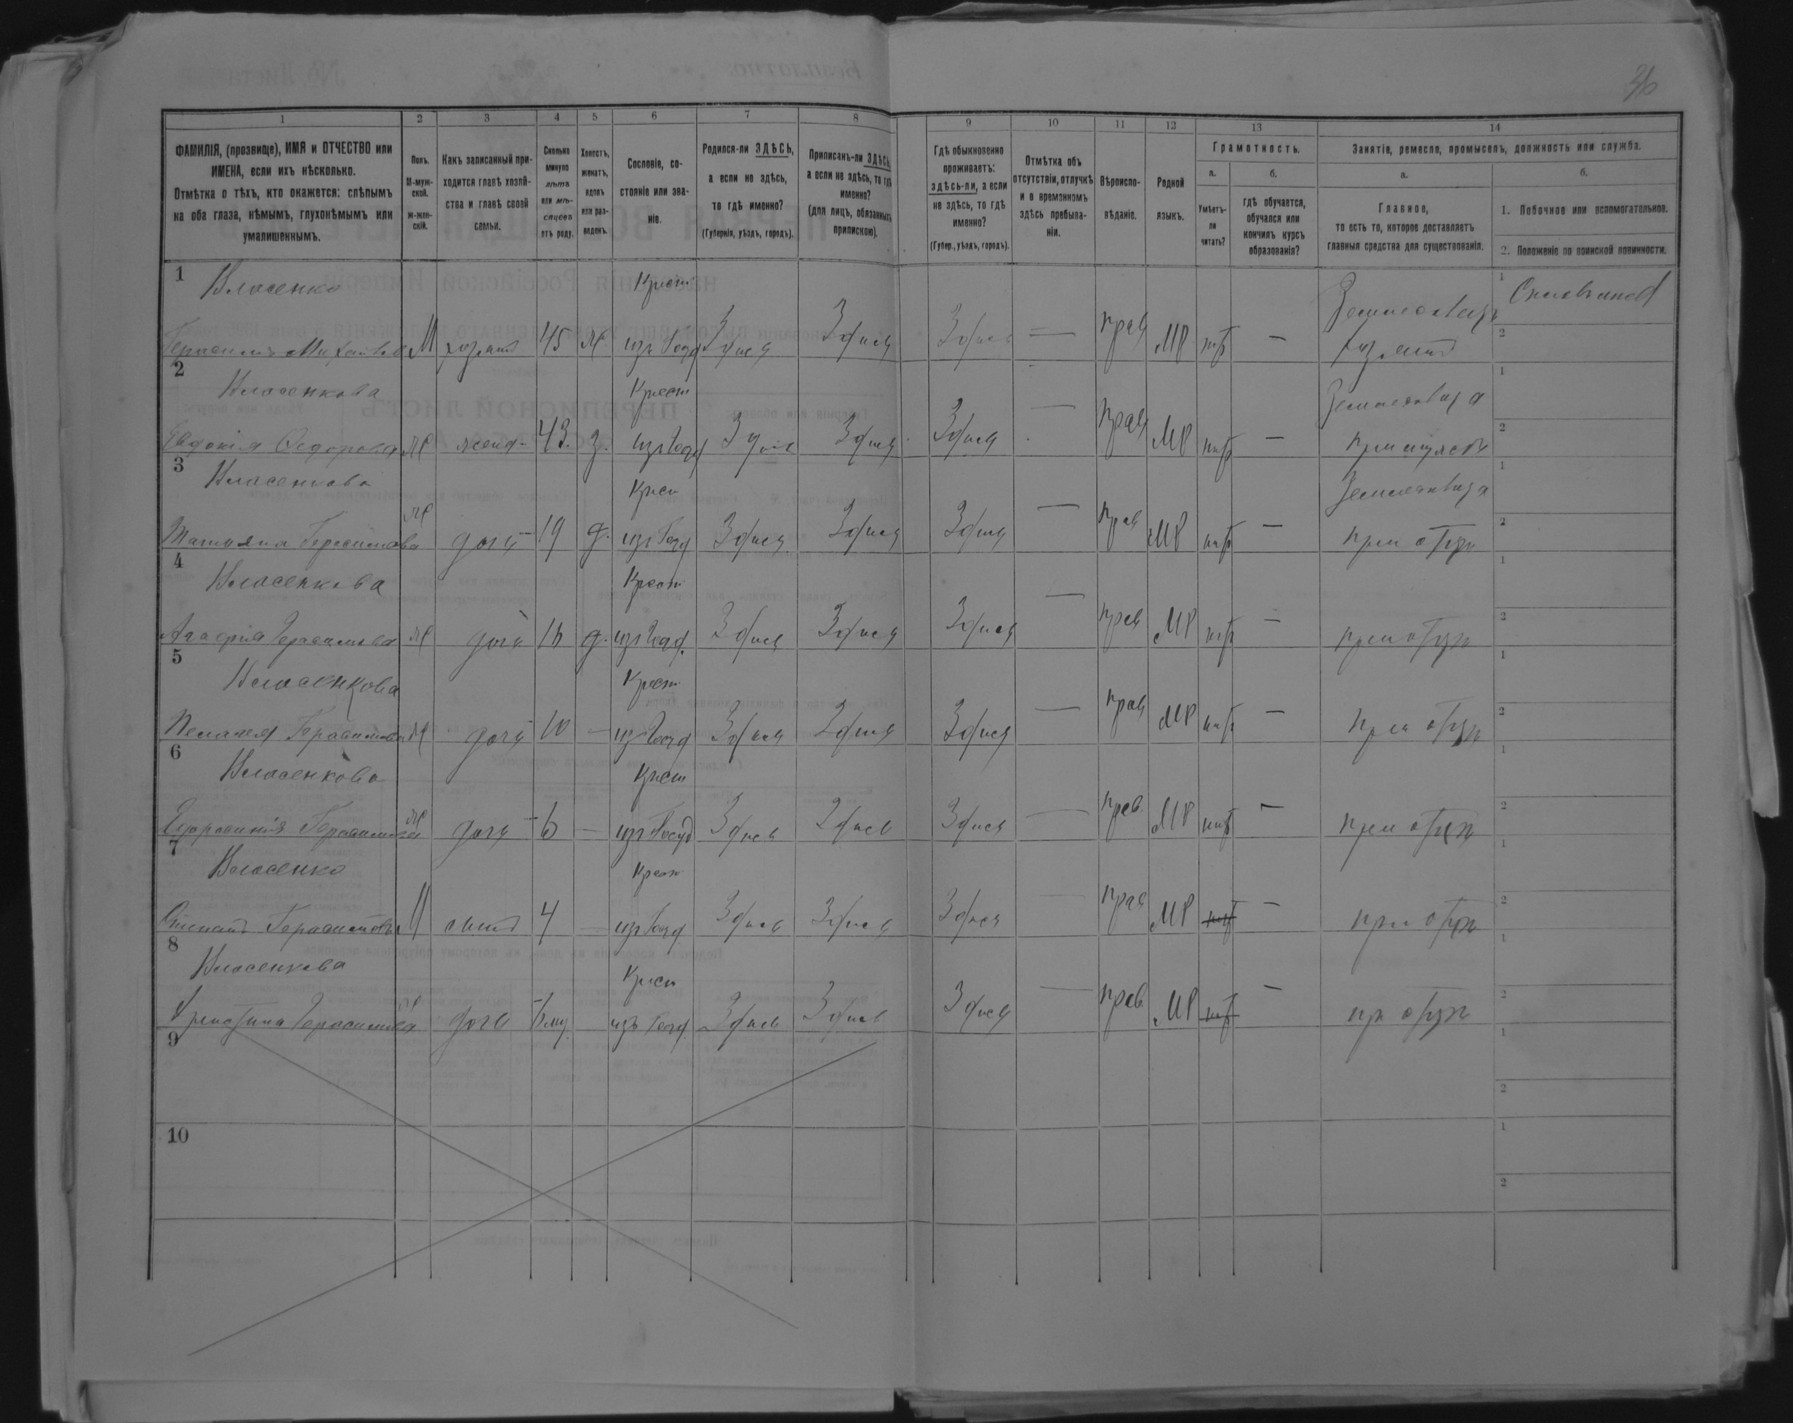 36
1 2 3 4 5 6 7 8 9 10 11 12 13 14
ФАМИЛІЯ, (прозвище), ИМЯ и ОТЧЕСТВО или
ИМЕНА, если ихъ нѣсколько.
Отмѣтка о тѣхъ, кто окажется: слѣпымъ
на оба глаза, нѣмымъ, глухонѣмымъ или
умалишеннымъ.
Полъ.
М-муж-
ской.
Ж-жен-
скій.
Какъ записанный при-
ходится главѣ хозяй-
ства и главѣ своей
семьи.
Сколько
минуло
лѣтъ
или мѣ-
сяцевъ
отъ роду.
Холостъ,
женатъ,
вдовъ
или раз-
веденъ.
Сословіе, со-
стояніе или зва-
ніе.
Родился-ли ЗДѢСЬ,
а если не здѣсь,
то гдѣ именно?
(Губернія, уѣздъ, городъ).
Приписанъ-ли ЗДѢСЬ,
а если не здѣсь, то гдѣ
именно?
(для лицъ, обязанныхъ
припискою).
Гдѣ обыкновенно
проживаетъ:
здѣсь-ли, а если
не здѣсь, то гдѣ
именно?
(Губер., уѣздъ, городъ).
Отмѣтка объ
отсутствіи, отлучкѣ
и о временномъ
здѣсь пребыва-
ніи.
Вѣроиспо-
вѣданіе.
Родной
языкъ.
Грамотность.
а.
Умѣетъ-
ли
читать?
б.
гдѣ обучается,
обучался или
кончилъ курсъ
образованія?
Занятіе, ремесло, промыселъ, должность или служба.
а.
Главное,
то есть то, которое доставляетъ
главныя средства для существованія.
б.
1. Побочное или вспомогательное.
2. Положеніе по воинской повинности.
1 Власенко Крест
Герасимъ Михайловъ М хозяинъ 45 ж. изъ Госуд Здѣсь Здѣсь Здѣсь — прав МР нтъ — хозяинъ
2 Власенкова Крест
Евдокія Федорова ж жена 43 з. изъ Госуд Здѣсь Здѣсь Здѣсь — прав МР нтъ —
3 Власенкова Крест
Татьяна Герасимова ж дочь 19 д. изъ Госуд Здѣсь Здѣсь Здѣсь — прав МР нтъ — при отцѣ
4 Власенкова Крест
Герасимова ж дочь 16 д. изъ Госуд. Здѣсь Здѣсь Здѣсь — прав МР нтъ — при отцѣ
5 Власенкова Крест
Пелагея Герасимова ж дочь 10 — изъ Госуд Здѣсь Здѣсь Здѣсь — прав МР нтъ — при отцѣ
6 Власенкова Крест
Герасимова ж дочь 6 — изъ Госуд Здѣсь Здѣсь Здѣсь — прав МР нтъ — при отцѣ
7 Власенко Крест
Герасимовъ М сынъ 4 — изъ Госуд Здѣсь Здѣсь Здѣсь — прав МР нтъ — при отцѣ
8 Власенкова Крест
Христина Герасимова ж дочь изъ Госуд Здѣсь Здѣсь Здѣсь — прав МР нтъ — при отцѣ
9
10